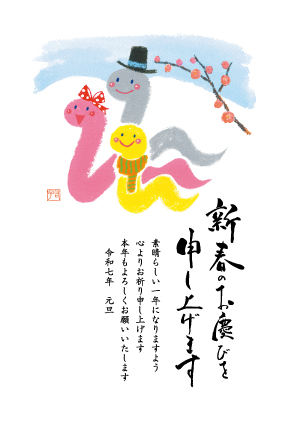 新春のお慶びを
申し上げます
素晴らしい一年になりますよう
心よりお祈り申し上げます
本年もよろしくお願いいたします
令和七年　元旦